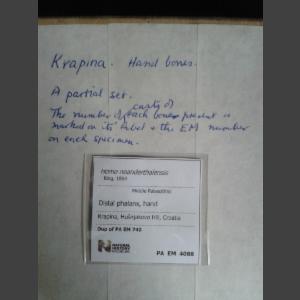 Krapina. Hand bones.
A partial set.
casts of
The number of each bone present is
marked on its label + the EM number
on each specimen.
Homo neanderthalensis
King, 1864
Middle Palaeolithic
Distal phalanx, hand
Krapina, Hušnjakovo Hill, Croatia
Dup of PA EM 742
NATURAL
HISTORY
MUSEUM
PA EM 4088